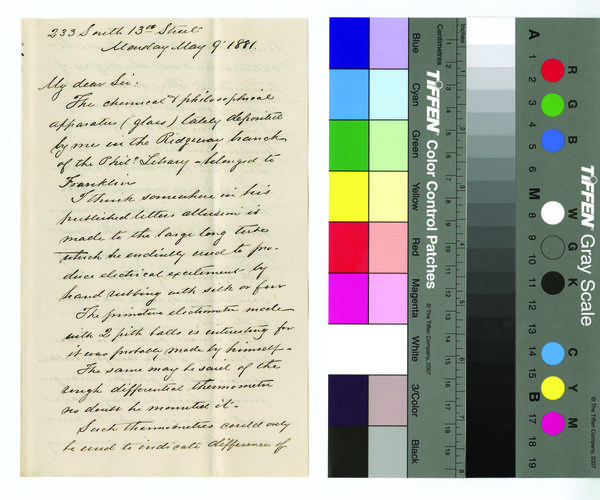 233 South 13th Street
Monday May 9 1881.
My dear Sir:
The chemical & philosophical
apparatus (glass) lately deposited
by me in the Ridgway branch
of the Phila. Library belonged to
Franklin
I think somewhere in his
published letters allusion is
made to the large long tube
which he evidently used to pro-
duce electrical excitement by
hand rubbing with silk or fur
The primitive electrometer made
with 2 pith balls is interesting for
it was probably made by himself-
The same may be said of the
rough differential thermometer
no doubt he mounted it.-
Such thermometers could only
be used to indicate difference of
Blue
Cyan
Green
Yellow
Red
Magenta
White
3/Color
Black
TIFFEN Color Control Patches
© The Tiffen Company, 2007
Centimetres
Inches
A
1
2
3
4
5
6
M
8
9
10
11
12
13
14
15
B
17
18
19
R
G
B
W
G
K
C
Y
M
TIFFEN Gray Scale
© The Tiffen Company, 2007